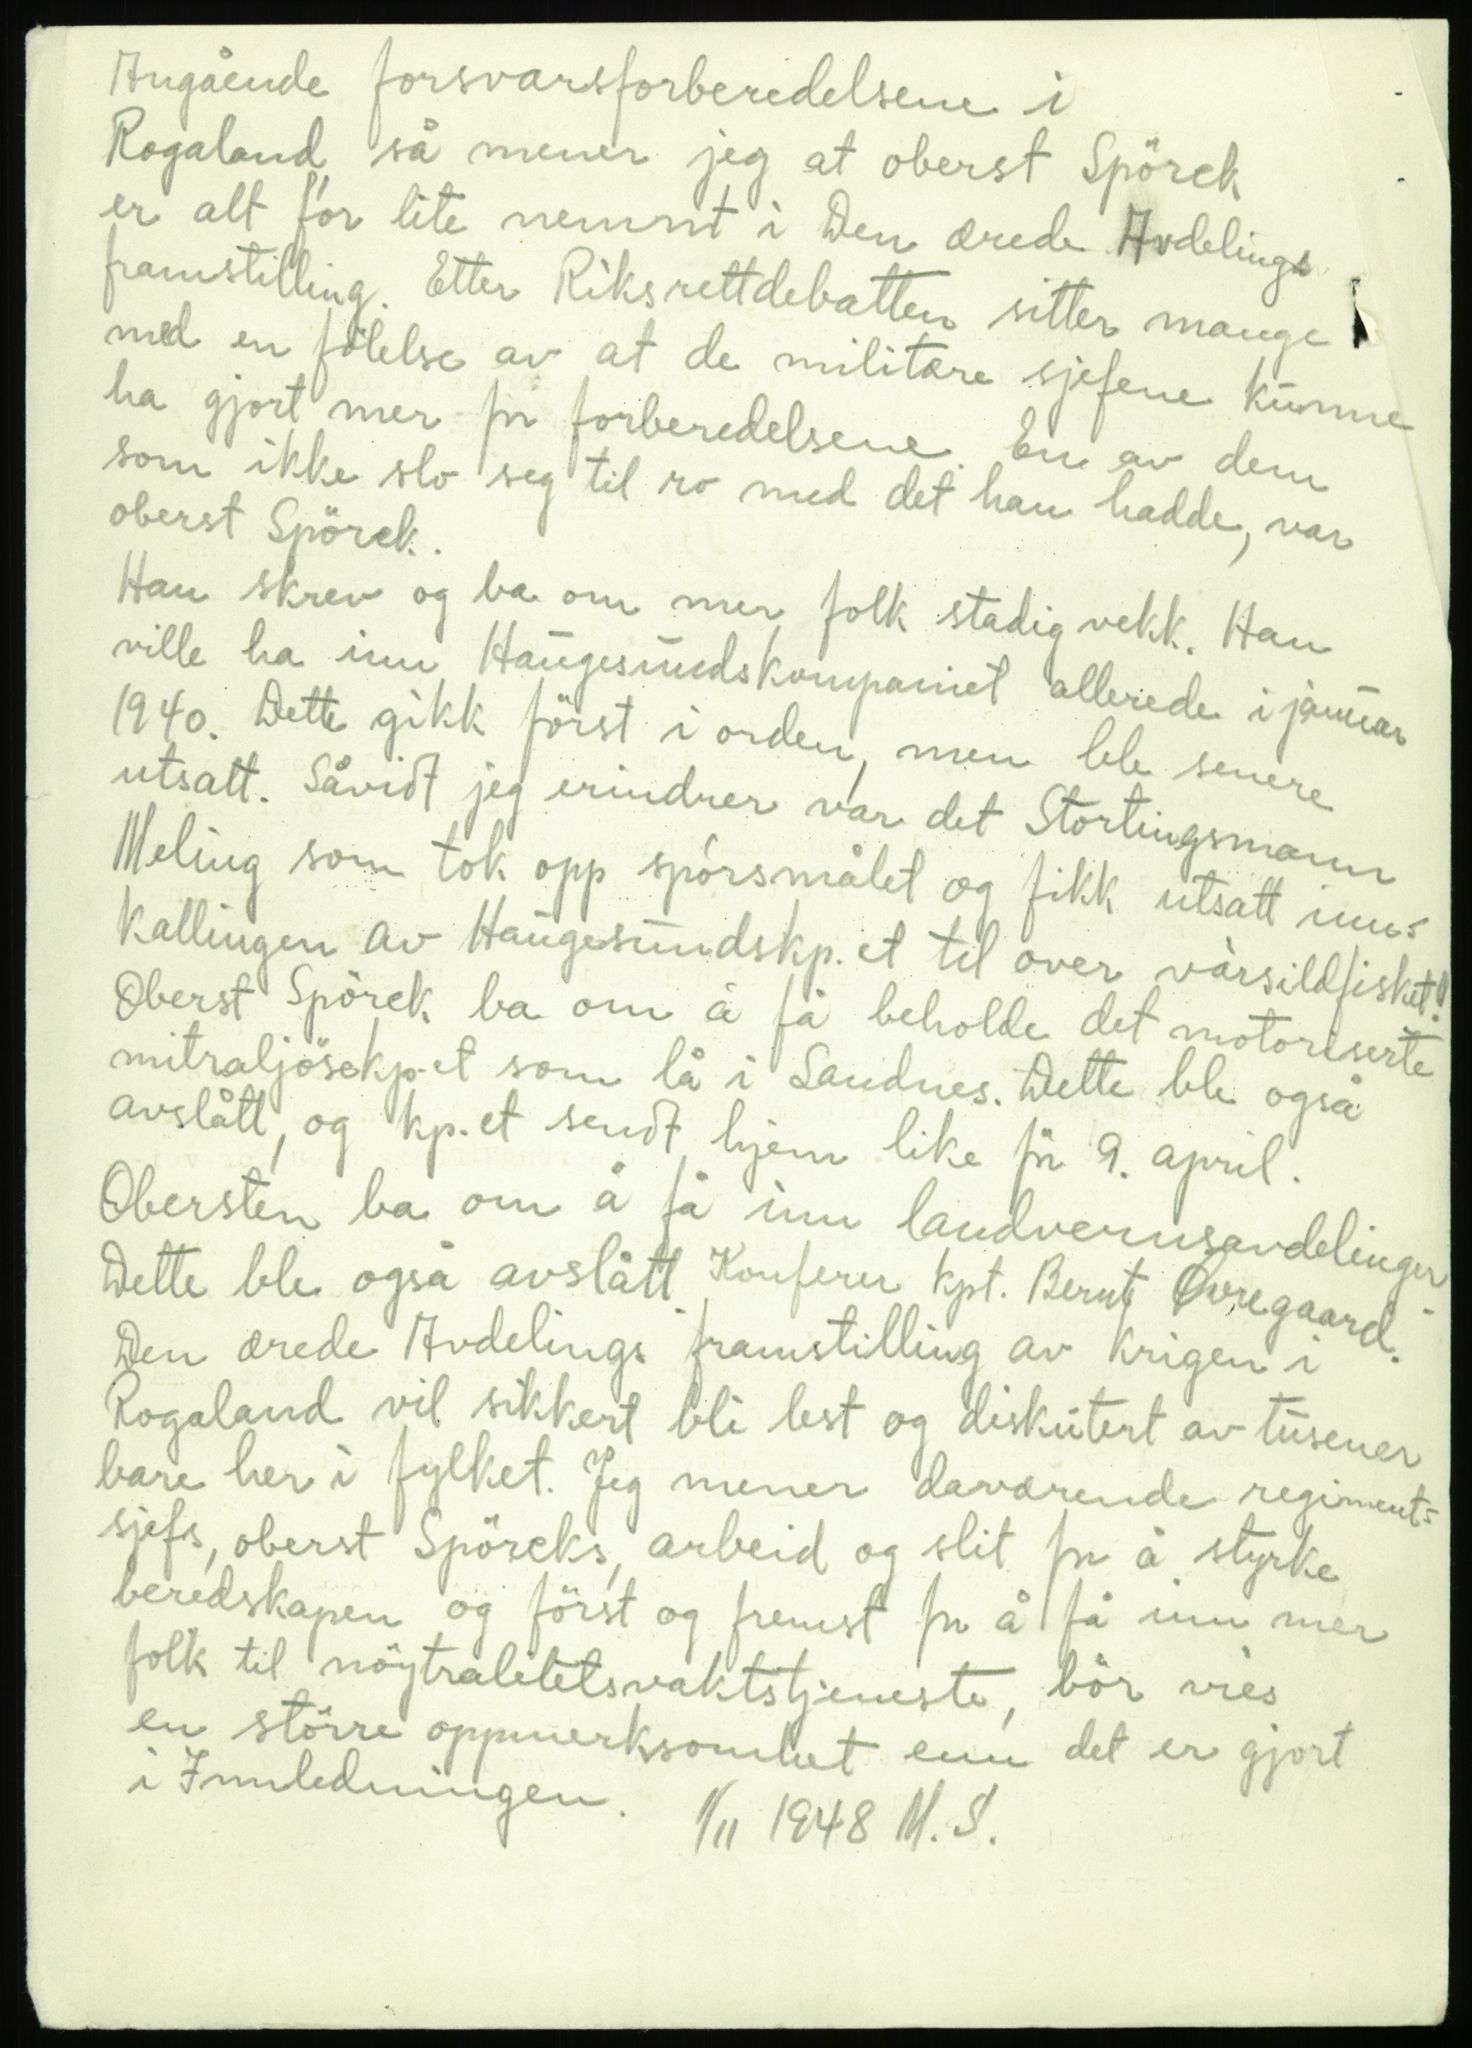 Angående forsvarsforberedelsene i
Rogaland, så mener jeg at oberst Spörck
er alt for lite nemnt i Den ærede Avdelings
framstilling. Etter Riksrettdebatten sitter mange
med en fölelse av at de militære sjefene kunne
ha gjort mer for forberedelsene. En av dem
som ikke slo seg til ro med det han hadde, var
oberst Spörck.
Han skrev og ba om mer folk stadig vekk. Han
ville ha inn Haugesundskompaniet allerede i januar
1940. Dette gikk först i orden, men ble senere
utsatt. Såvidt jeg erindrer var det Stortingsmann
Meling som tok opp spörsmålet og fikk utsatt inn-
kallingen av Haugesundskp.et til over vårsildfisket!
Oberst Spörck ba om å få beholde det motoriserte
mitraljösekp.et som lå i Sandnes. Dette ble også
avslått, og kp.et sendt hjem like för 9. april.
Obersten ba om å få inn landvernsavdelinger.
Dette ble også avslått. Konferer kpt. Bernt Øvregaard.
Den ærede Avdelings framstilling av krigen i
Rogaland vil sikkert bli lest og diskutert av tusener
bare her i fylket. Jeg mener daværende regiments-
sjefs, oberst Spörcks, arbeid og slit for å styrke
beredskapen og först og fremst for å få inn mer
folk til nöytralitetsvaktstjeneste, bör vies
en större oppmerksomhet enn det er gjort
i Innledningen.
1/11 1948 M. S.